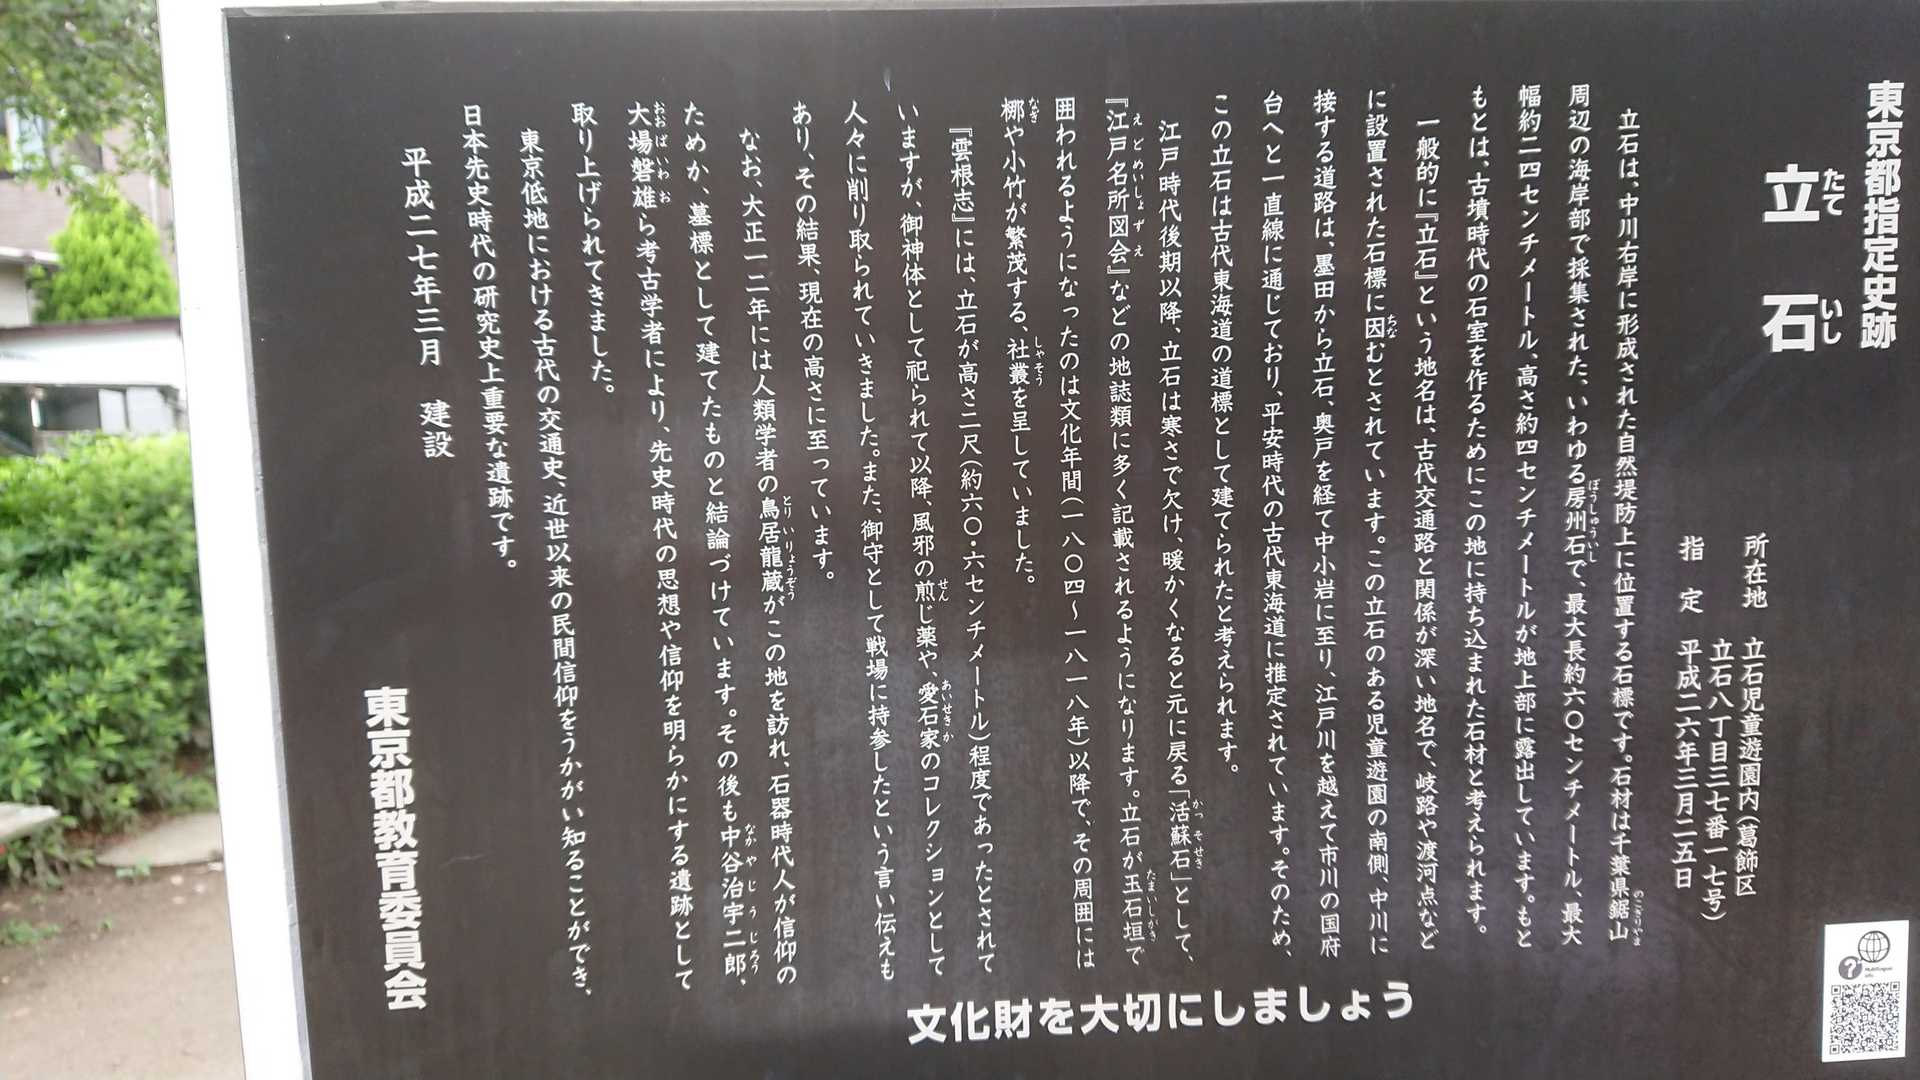 東京都指定史跡
立石
たて いし
所在地 立石児童遊園内(葛飾区
立石八丁目三七番一七号)
指定 平成二六年三月二五日
立石は、中川右岸に形成された自然堤防上に位置する石標です。石材は千葉県鋸山
のこぎりやま
周辺の海岸部で採集された、いわゆる房州石で、最大長約六〇センチメートル、最大
ぼうしゅういし
幅約二四センチメートル、高さ約四センチメートルが地上部に露出しています。もと
もとは、古墳時代の石室を作るためにこの地に持ち込まれた石材と考えられます。
一般的に『立石』という地名は、古代交通路と関係が深い地名で、岐路や渡河点など
に設置された石標に因むとされています。この立石のある児童遊園の南側、中川に
ちな
接する道路は、墨田から立石、奥戸を経て中小岩に至り、江戸川を越えて市川の国府
台へと一直線に通じており、平安時代の古代東海道に推定されています。そのため、
この立石は古代東海道の道標として建てられたと考えられます。
江戸時代後期以降、立石は寒さで欠け、暖かくなると元に戻る「活蘇石」として、
かっそせき
『江戸名所図会』などの地誌類に多く記載されるようになります。立石が玉石垣で
えどめいしょずえ たまいしがき
囲われるようになったのは文化年間(一八〇四〜一八一八年)以降で、その周囲には
梛や小竹が繁茂する、社叢を呈していました。
なぎ しゃそう
『雲根志』には、立石が高さ二尺(約六〇・六センチメートル)程度であったとされて
いますが、御神体として祀られて以降、風邪の煎じ薬や、愛石家のコレクションとして
せん あいせきか
人々に削り取られていきました。また、御守として戦場に持参したという言い伝えも
あり、その結果、現在の高さに至っています。
なお、大正一二年には人類学者の鳥居龍蔵がこの地を訪れ、石器時代人が信仰の
とりいりょうぞう
ためか、墓標として建てたものと結論づけています。その後も中谷治宇二郎、
なかやじうじろう
大場磐雄ら考古学者により、先史時代の思想や信仰を明らかにする遺跡として
おおばいわお
取り上げられてきました。
東京低地における古代の交通史、近世以来の民間信仰をうかがい知ることができ、
日本先史時代の研究史上重要な遺跡です。
平成二七年三月 建設
東京都教育委員会
文化財を大切にしましょう
?
Multilingual
info